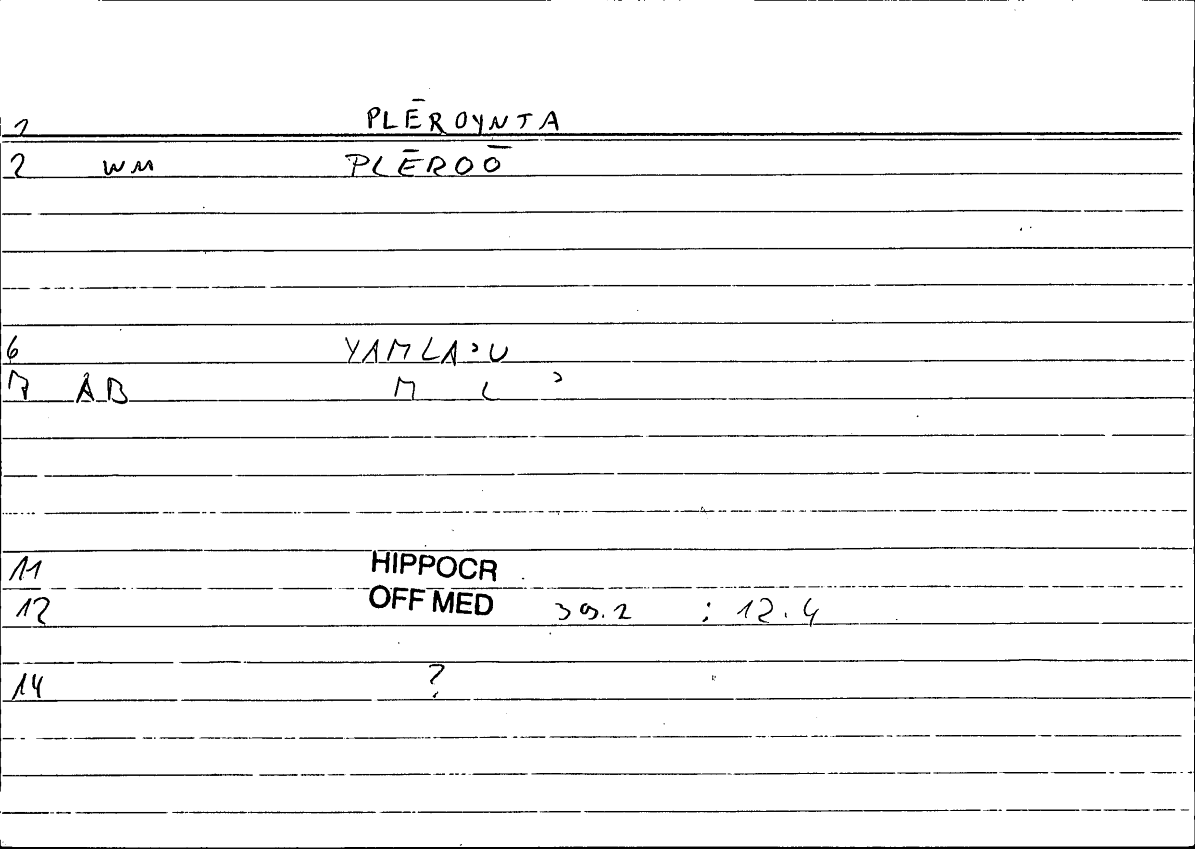 1 PLĒROYNTA
2 WM PLĒROŌ
6 YAMLAʾU
7 AB M L ʾ
11 HIPPOCR
12 OFF MED 39.2 : 12.4
14 ?